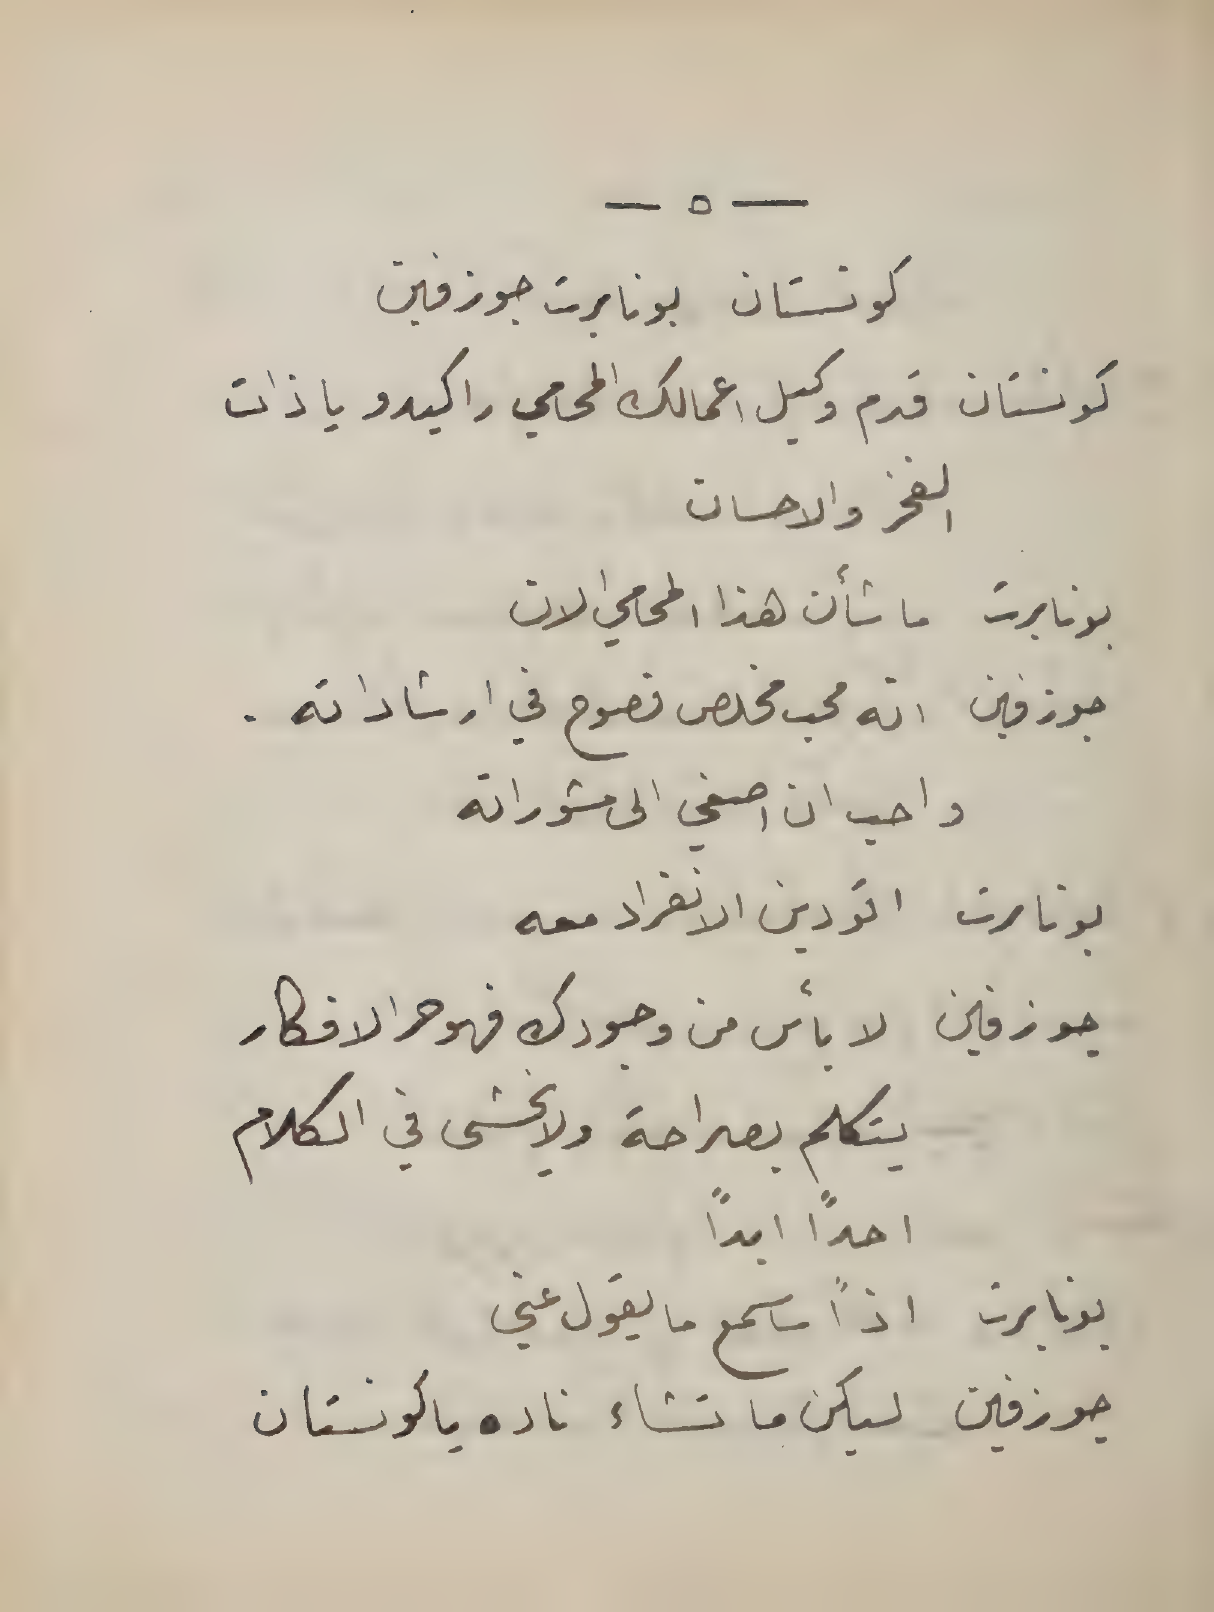 — ٥ —
كونستان بونابرت جوزفين
كونستان قدم وكيل اعمالك المحامي راكيدو يا ذات
الفخر والاحسان
بونابرت ما شأن هذا المحامي الان
جوزفين انه محب مخلص نصوح في ارشاداته .
واحب ان اصغي الى مشوراته
بونابرت اتودين الانفراد معه
جوزفين لا بأس من وجودك فهو حر الافكار
يتكلم بصراحة ولا يخشى في الكلام
احدًا ابدًا
بونابرت اذًا سأسمع ما يقول عني
جوزفين ليكن ما تشاء ناده يا كونستان